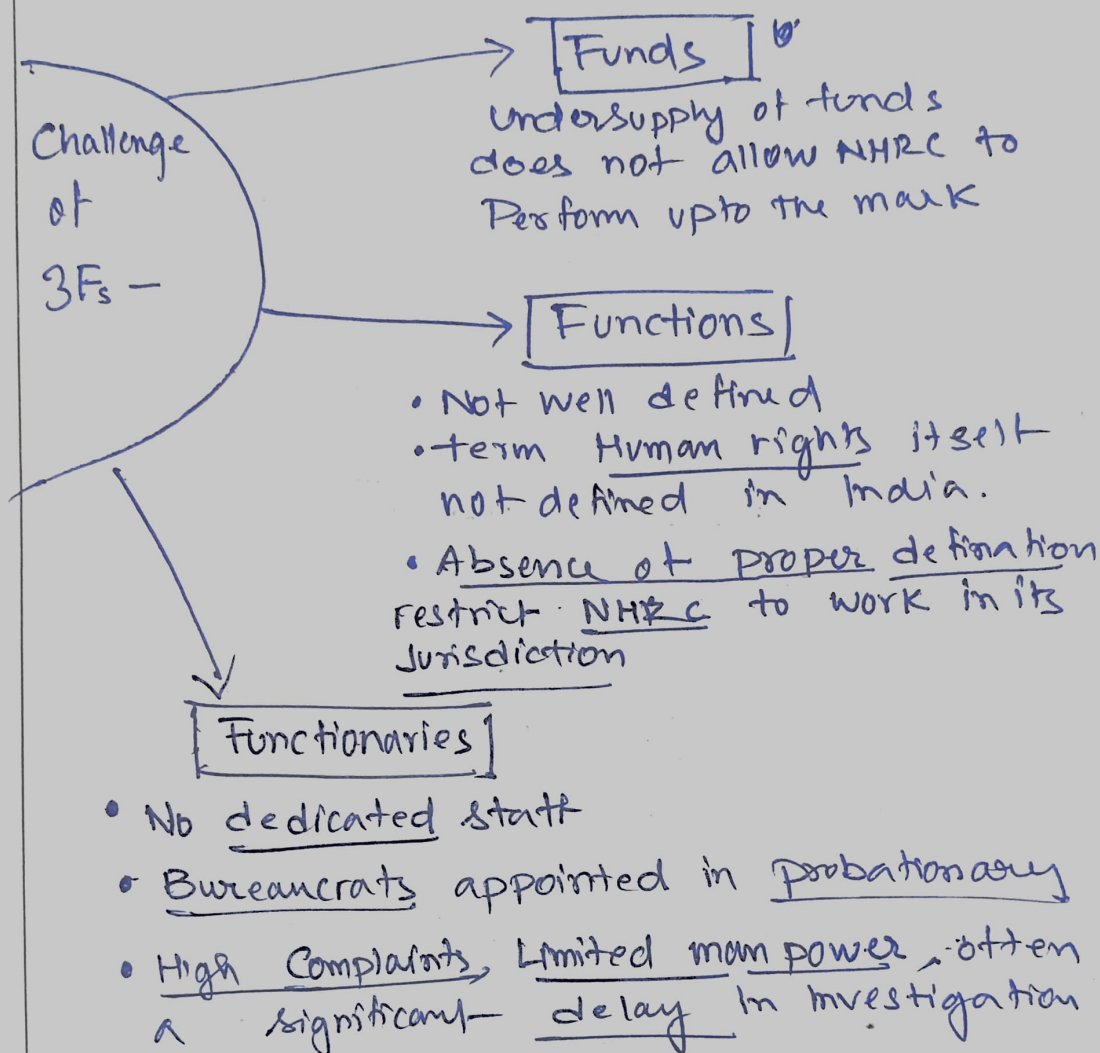 Challenge
of
3Fs –
Funds
undersupply of funds
does not allow NHRC to
Perform upto the mark
Functions
• Not well defined
• term Human rights itself
not defined in India.
• Absence of proper defination
restrict NHRC to work in its
Jurisdiction
Functionaries
• No dedicated staff
• Bureaucrats appointed in probationary
• High Complaints, Limited man power, often
a significant delay in investigation